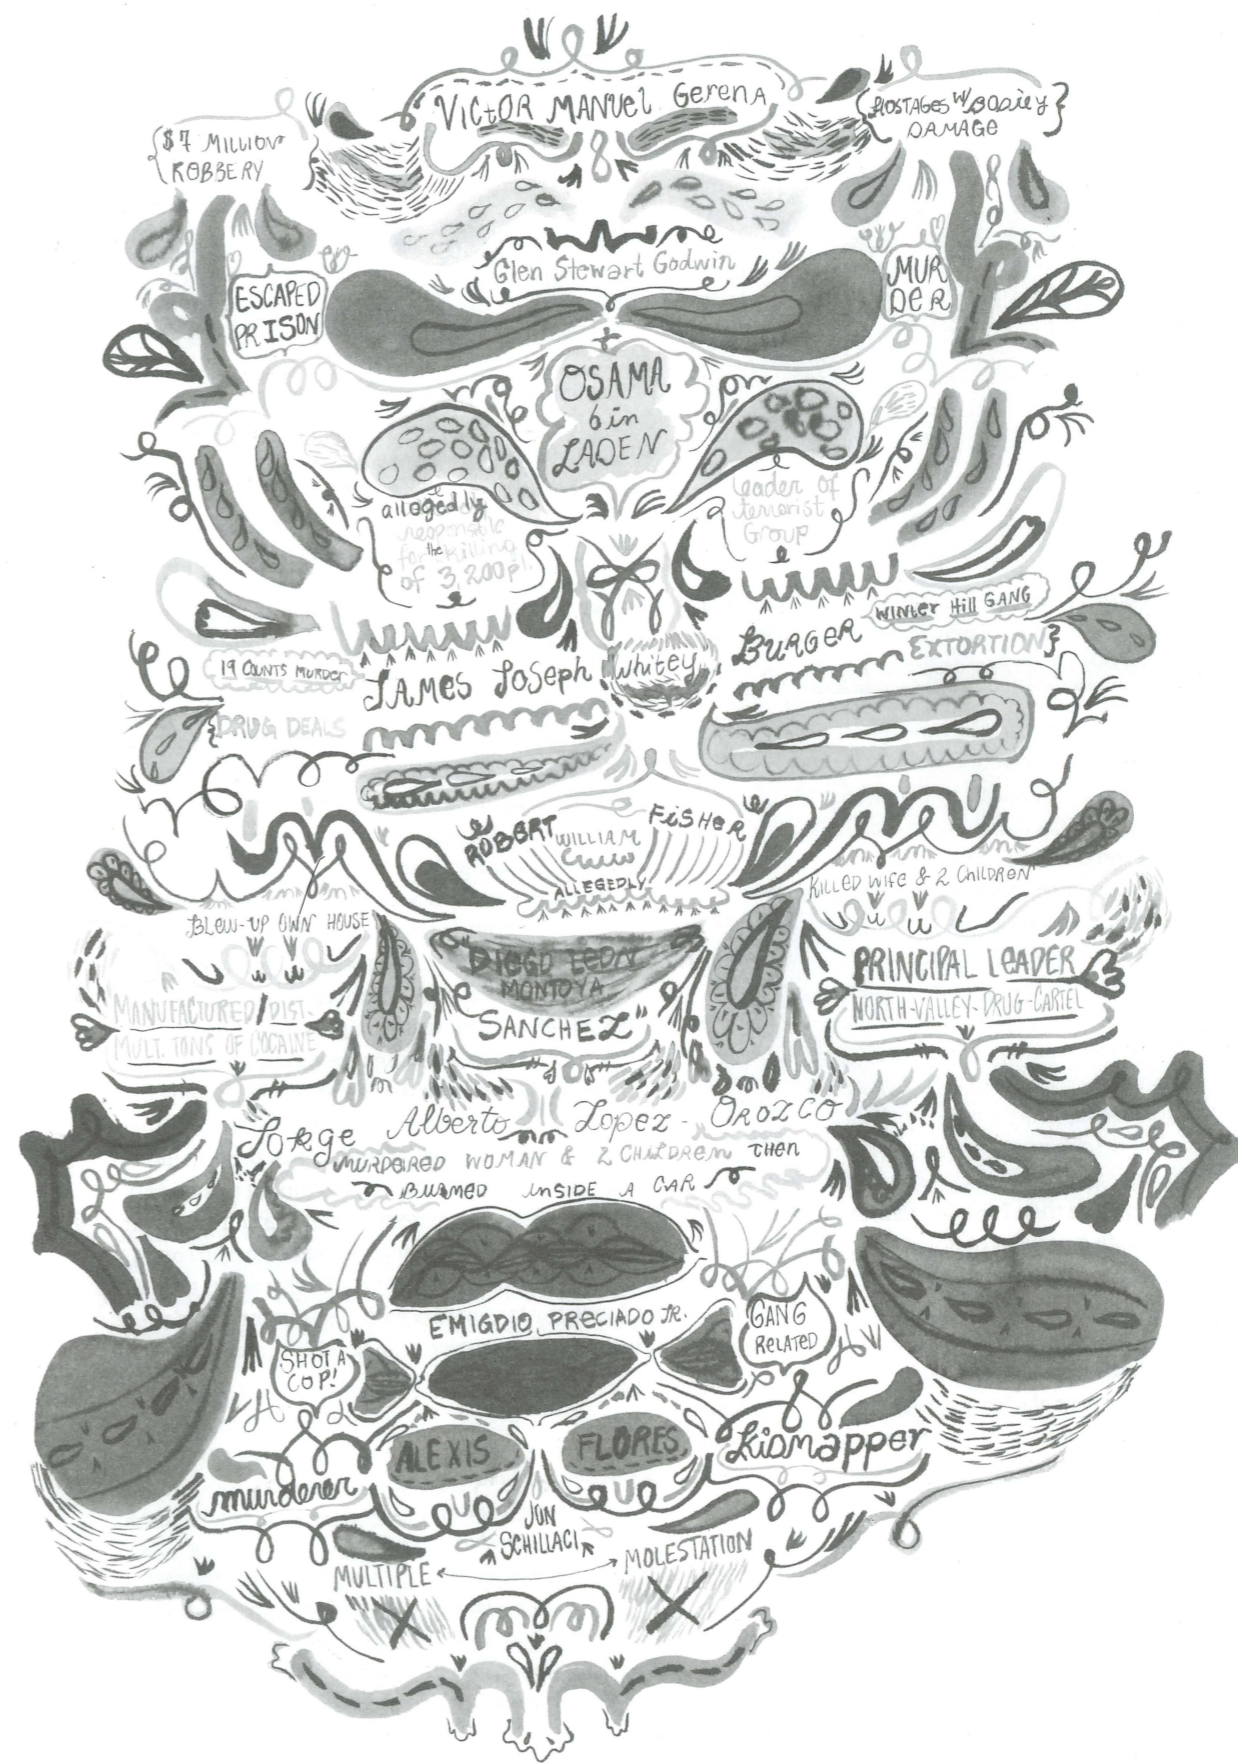 VICTOR MANUEL GERENA
$7 MILLION
ROBBERY
HOSTAGES W/BODILY
DAMAGE
Glen Stewart Godwin
ESCAPED
PRISON
MUR
DER
OSAMA
bin
LADEN
allegedly
responsible
for the killing
of 3,200 pl.
leader of
terrorist
Group
JAMES JOSEPH "Whitey" BURGER
WINTER Hill GANG
EXTORTION
19 COUNTS MURDER
DRUG DEALS
ROBERT WILLIAM FISHER
ALLEGEDLY
BLEW-UP OWN HOUSE
KILLED WIFE & 2 CHILDREN
"DIEGO LEON
MONTOYA
SANCHEZ"
MANUFACTURED/DIST.
MULT. TONS OF COCAINE
PRINCIPAL LEADER
NORTH-VALLEY-DRUG-CARTEL
Jorge Alberto Lopez-Orozco
MURDERED WOMAN & 2 CHILDREN THEN
BURNED INSIDE A CAR
EMIGDIO PRECIADO JR.
SHOT A
COP!
GANG
RELATED
ALEXIS FLORES
murderer
Kidnapper
JON
SCHILLACI
MULTIPLE MOLESTATION